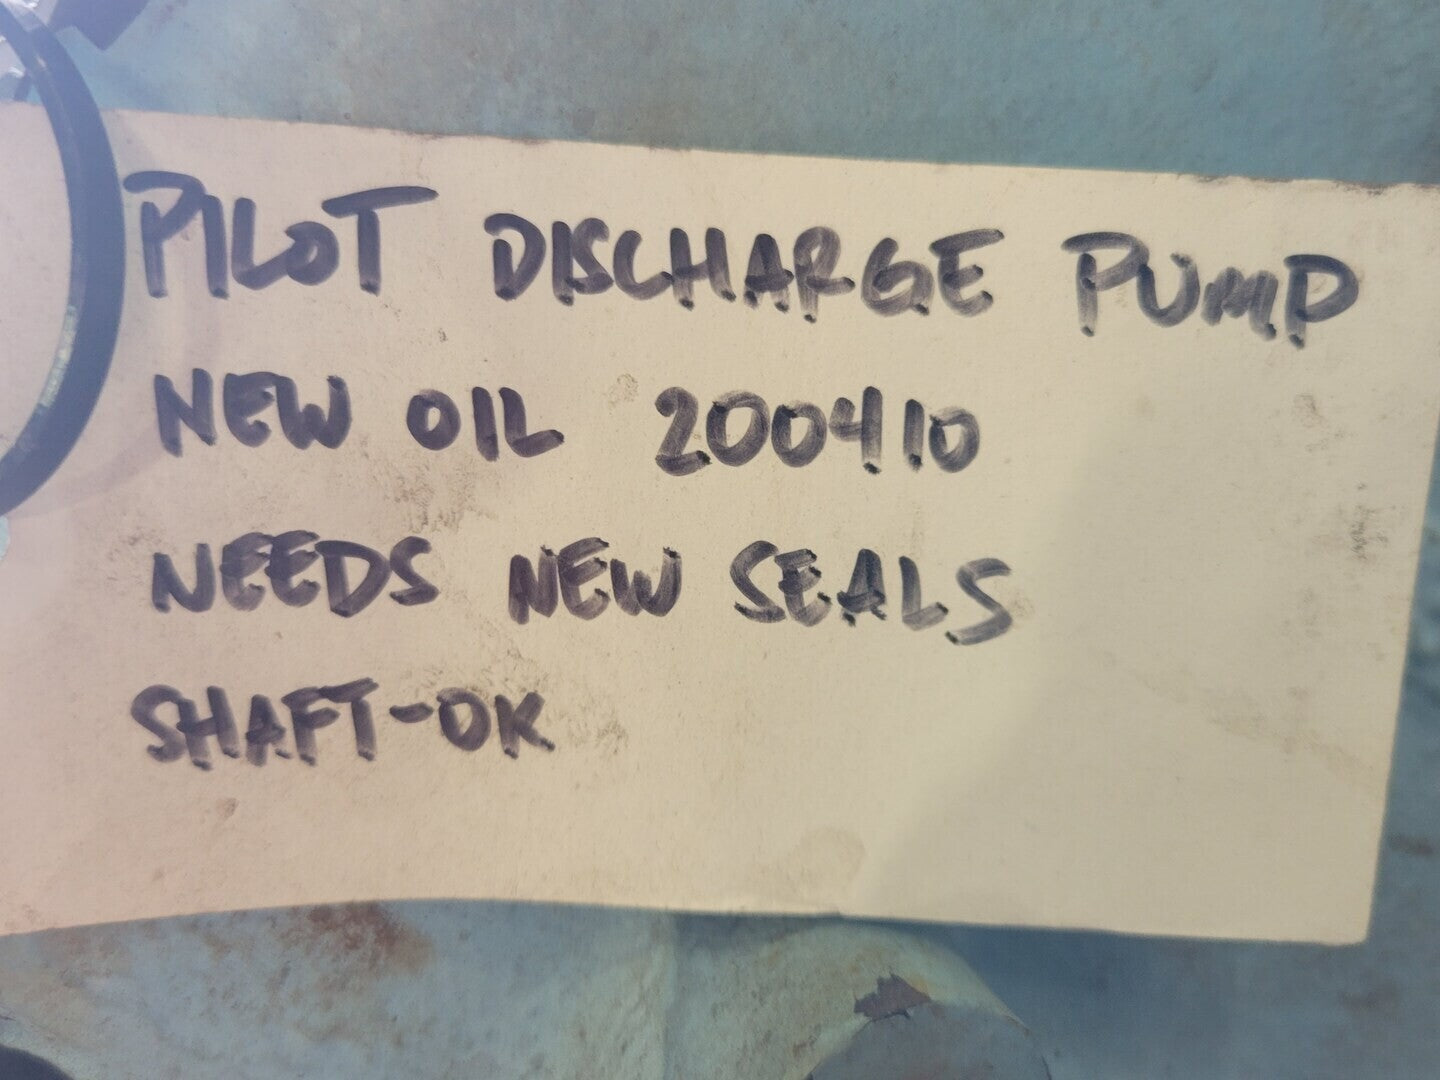 PILOT DISCHARGE PUMP
NEW OIL 200410
NEEDS NEW SEALS
SHAFT-OK